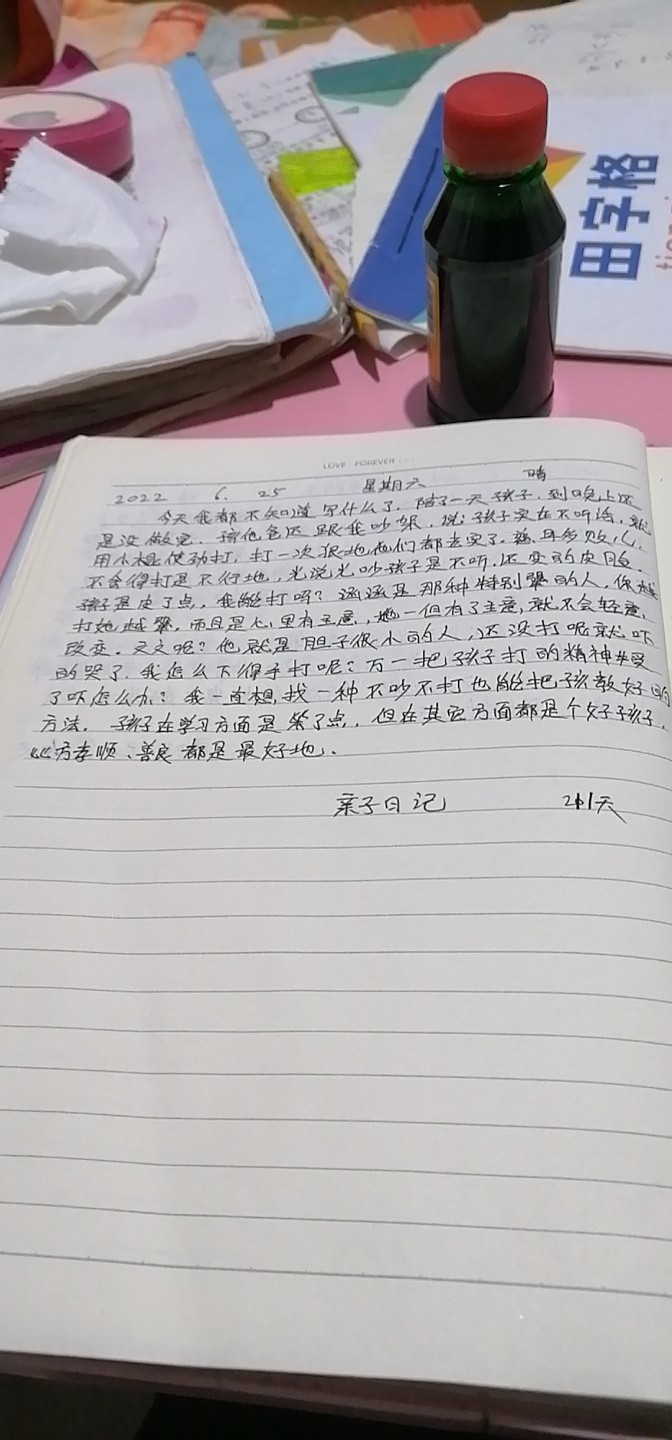 田字格
LOVE FOREVER
2022 6. 25 星期六 晴
今天我都不知道写什么了. 陪了一天孩子. 到晚上还
是没做完. 孩他爸还跟我吵架, 说: 孩子实在不听话, 就
用小棍使劲打, 打一次狠地他们都去实了.
不舍得打是不行地, 光说光吵孩子是不听, 还变的皮脸.
孩子是皮了点, 我能打吗? 涵涵是那种特别犟的人, 你越
打她越犟, 而且是心里有主意, 她一但有了主意, 就不会轻意,
改变. 文文呢? 他就是胆子很小的人, 还没打呢就吓
的哭了. 我怎么下得手打呢? 万一把孩子打的精神受
了吓怎么办? 我一直想找一种不吵不打也能把孩教好的
方法. 孩子在学习方面是笨了点, 但在其它方面都是个好子孩子.
方孝顺、善良都是最好地.
亲子日记 天